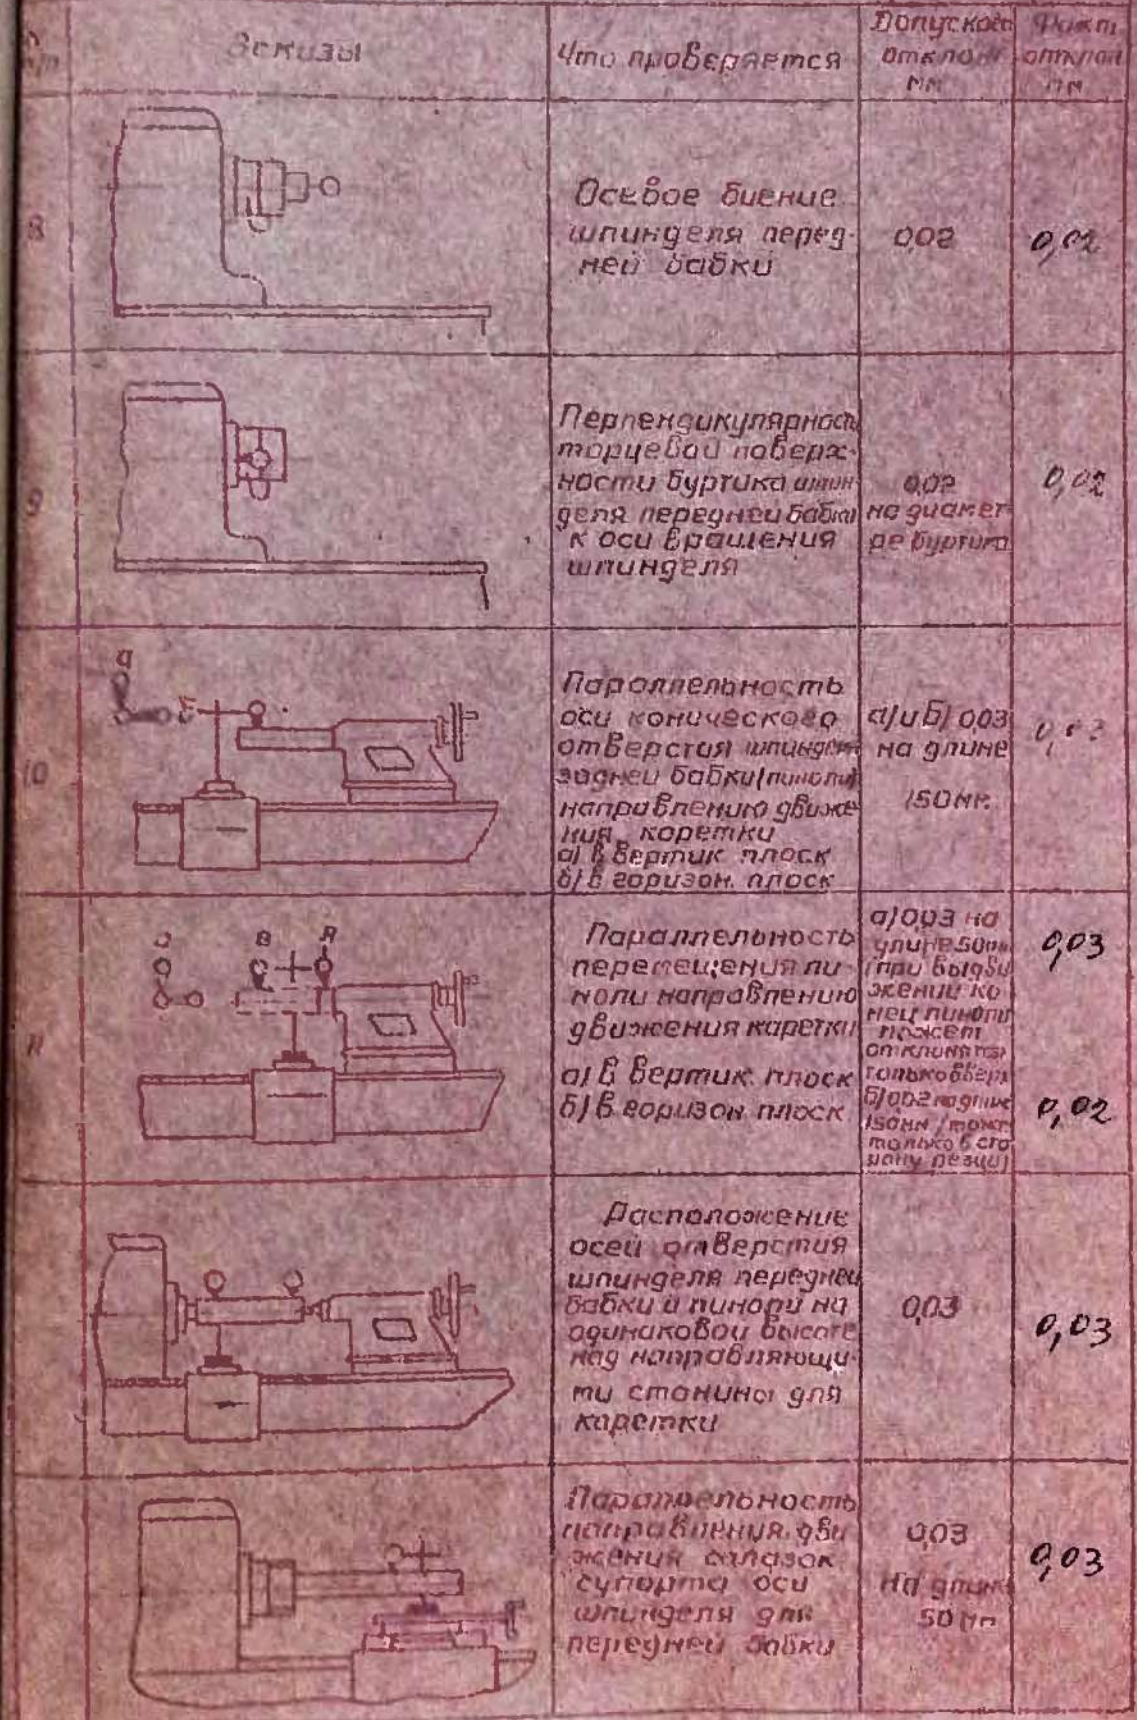 п/п
Эскизы
Что проверяется
Допускаем
отклон
мм
Факт
отклон
мм
8
Осевое биение
шпинделя перед-
ней бабки
0,02
0,02
9
Перпендикулярность
торцевой поверх-
ности буртика шпин
деля передней бабки
к оси вращения
шпинделя
0,02
на диамет
ре буртика
0,02
10
а
Параллельность
оси конического
отверстия шпинделя
задней бабки (пиноли)
направлению движе
ния каретки
а) в вертик плоск
б) в горизон. плоск
а) и б) 0,03
на длине
150мм
11
Параллельность
перемещения пи
ноли направлению
движения каретки
а) в вертик. плоск
б) в горизон плоск
а) 0,03 на
длине 50мм
(при выдви
жении ко
нец пиноли
может
отклонятьс
только вверх
б) 0,02 на длине
150мм (тоже
только в сто
рону резца)
0,03
0,02
Расположение
осей отверстия
шпинделя передней
бабки и пиноли на
одинаковой высоте
над направляющи-
ми станины для
каретки
0,03
0,03
Параллельность
направления дви
жения салазок
супорта оси
шпинделя для
передней бабки
0,03
На длине
50 мм
0,03